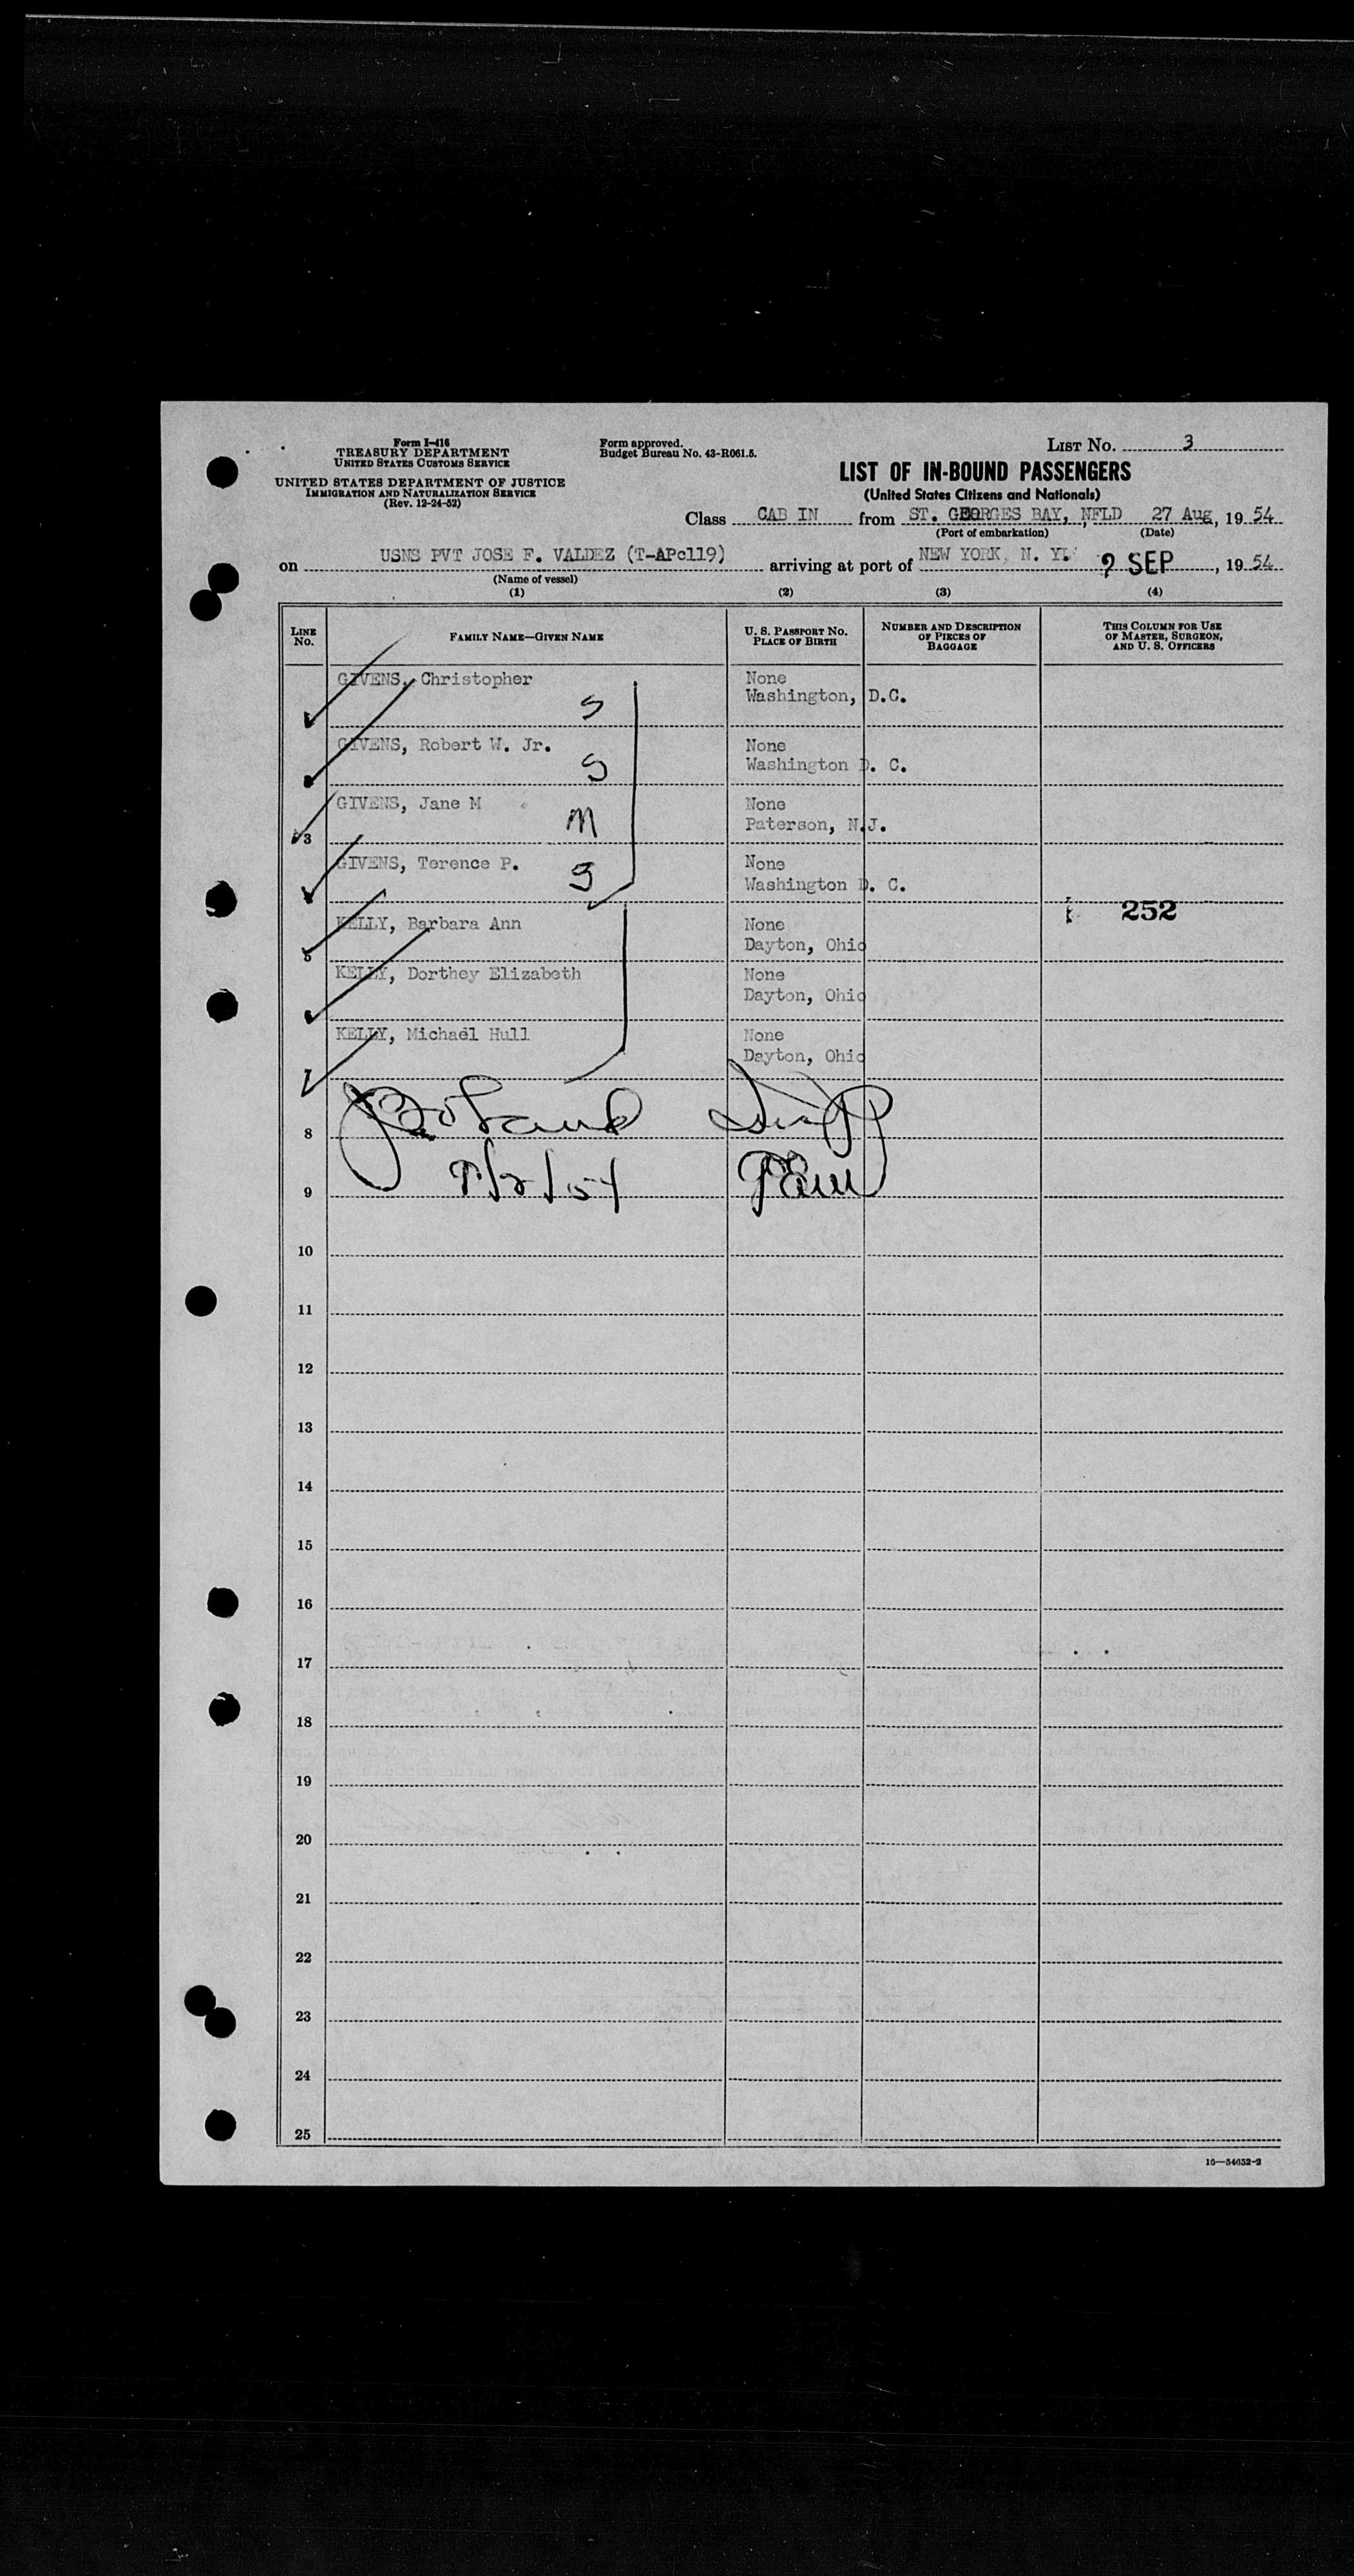 Form I-416
TREASURY DEPARTMENT
UNITED STATES CUSTOMS SERVICE
UNITED STATES DEPARTMENT OF JUSTICE
IMMIGRATION AND NATURALIZATION SERVICE
(Rev. 12-24-52)
Form approved.
Budget Bureau No. 43-R061.5.
LIST NO. 3
LIST OF IN-BOUND PASSENGERS
(United States Citizens and Nationals)
Class CAB IN from ST. GEORGES BAY, NFLD 27 Aug, 19 54
(Port of embarkation) (Date)
on USNS PVT JOSE F. VALDEZ (T-APc119) arriving at port of NEW YORK, N. Y. 2 SEP, 19 54
(Name of vessel)
(1) (2) (3) (4)
LINE NO. FAMILY NAME—GIVEN NAME U. S. PASSPORT NO. PLACE OF BIRTH NUMBER AND DESCRIPTION OF PIECES OF BAGGAGE THIS COLUMN FOR USE OF MASTER, SURGEON, AND U. S. OFFICERS
GIVENS, Christopher None
S Washington, D.C.
GIVENS, Robert W. Jr. None
S Washington D. C.
GIVENS, Jane M None
3 M Paterson, N.J.
GIVENS, Terence P. None
S Washington D. C.
252
KELLY, Barbara Ann None
5 Dayton, Ohio
KELLY, Dorthey Elizabeth None
Dayton, Ohio
KELLY, Michael Hull None
7 Dayton, Ohio
8
9 9/2/54
10
11
12
13
14
15
16
17
18
19
20
21
22
23
24
25
16—54652-2